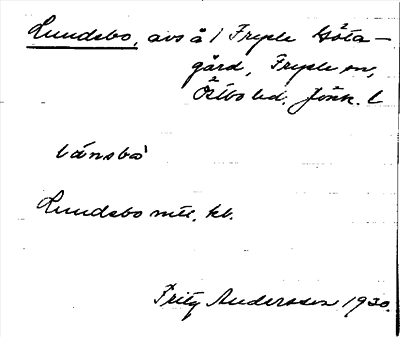 Lundsbo, avs å 1 Fryele Göta-
gård, Fryele sn,
Östbo hd. Jönk. l
lánsbò
Lundsbo mtl. kb.
Fritz Andersson 1930.